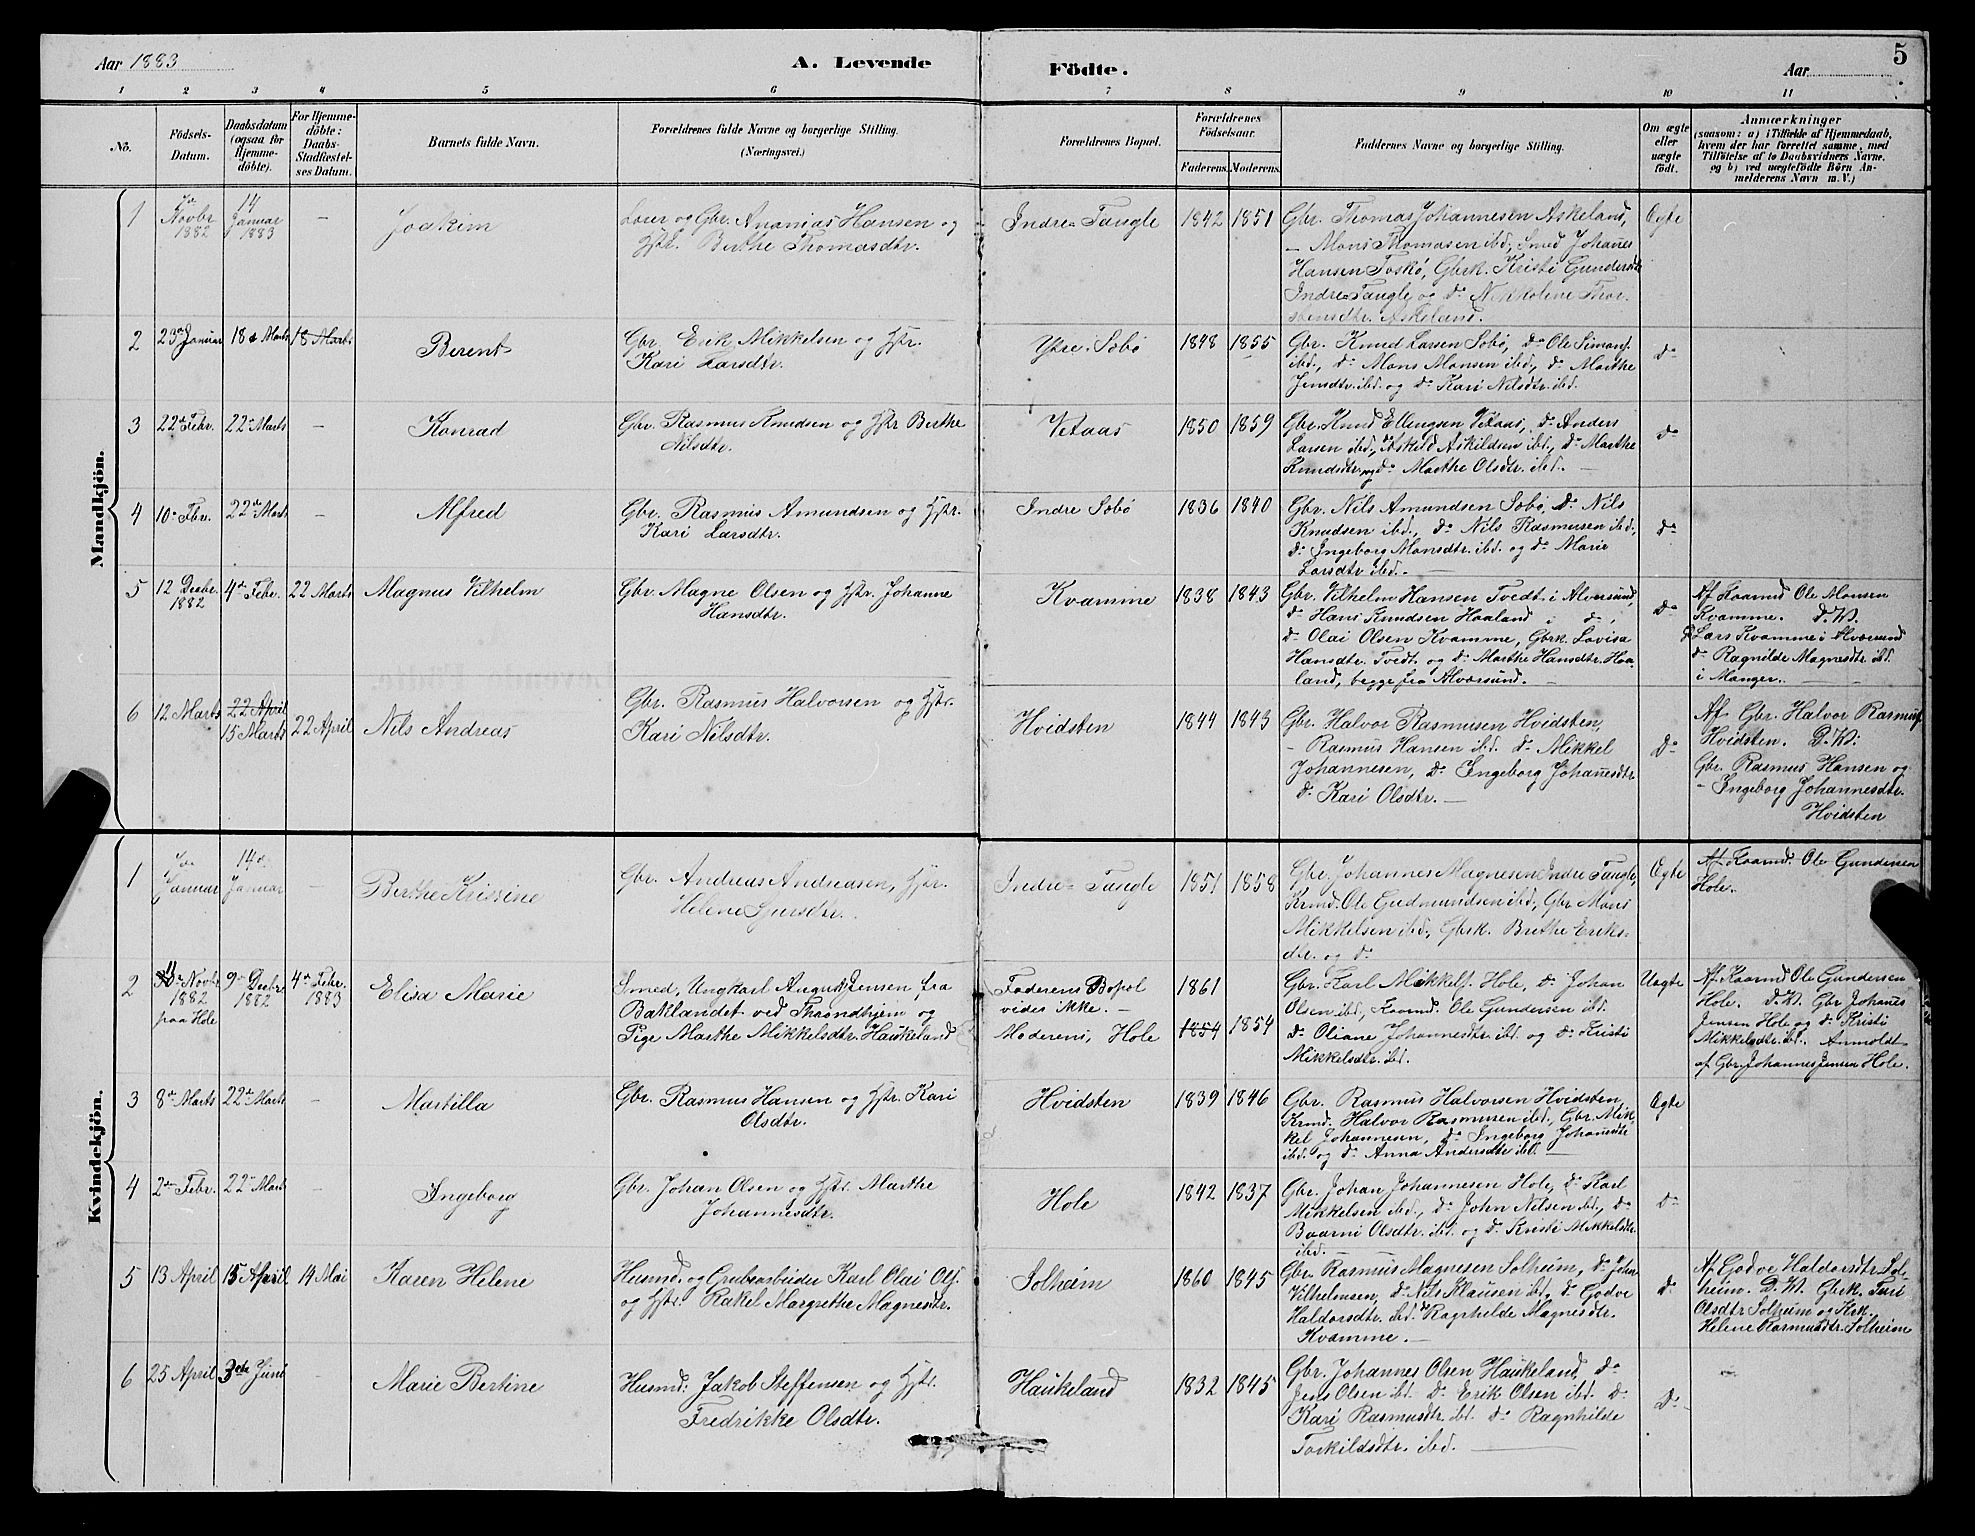 Aar 1883
A. Levende
Födte.
Aar
5
1 2 3 4 5 6 7 8 9 10 11
No.
Födsels-
Datum.
Daabsdatum
(ogsaa for
Hjemme-
döbte).
For Hjemme-
döbte:
Daabs-
Stadfæstel-
ses Datum.
Barnets fulde Navn.
Forældrenes fulde Navne og borgerlige Stilling.
(Næringsvei.)
Forældrenes Bopæl.
Forældrenes
Födselsaar.
Faderens. Moderens.
Faddernes Navne og borgerlige Stilling.
Om ægte
eller
uægte
födt.
Anmærkninger
(saasom: a) i Tilfælde af Hjemmedaab,
hvem der har forrettet samme, med
Tilföielse af to Daabsvidners Navne.
og b) ved uægtefödte Börn An-
melderens Navn m. V.)
Mandkjön.
1
Novbr
1882
14
Januar
1883
–
Joakim
og Gbr. Ananias Hansen og
Hstr. Berthe Thomasdtr.
Indre Tangle
1842 1851
Gbr. Thomas Johannesen Askeland,
– Mons Thomasen ibd, Smed Johanes
Hansen Toskö, Gbrk. Kristi Gundersdtr
Indre Tangle og do Nikkoline Thor-
stensdtr. Askeland.
Ægte
2
23de Januar
18de Marts
18 Marts
Berent
Gbr. Erik Mikkelsen og Hstr.
Kari Larsdtr.
Ytre Söbö
1848 1855
Gbr. Knud Larsen Söbö, do Ole Simons.
ibd., do Mons Monsen ibd, do Marthe
Jensdtr. ibd. og do Kari Nilsdtr. ibd.
do
3
22de Febr.
22de Marts
–
Konrad
Gbr. Rasmus Knudsen og Hstr Berthe
Nilsdtr.
Vetaas
1850 1859
Gbr. Knud Ellingsen Vetaas, do Anders
Larsen ibd, Askild Askildsen ibd., do Marthe
Knudsdtr. og do Marthe Olsdtr. ibd. –
do
4
10de Fbr.
22de Marts
–
Alfred
Gbr. Rasmus Amundsen og Hstr.
Kari Larsdtr.
Indre Söbö
1836 1840
Gbr. Nils Amundsen Söbö, do Nils
Knudsen ibd., do Nils Rasmusen ibd,
do Ingeborg Monsdtr. ibd. og do Marie
Larsdtr ibd. –
do
5
12 Decbr.
1882
4de Febr.
22 Marts
Magnus Vilhelm
Gbr. Magne Olsen og Hstr. Johanne
Hansdtr.
Kvamme
1838 1843
Gbr. Vilhelm Hansen Tvedt i Alversund,
do Hans Knudsen Haaland i do,
do Olai Olsen Kvamme, Gbrk. Lovisa
Hansdtr. Tvedt. og do Marthe Hansdtr. Haa-
land, begge fra Alversund. –
do
Af Kaarmd Ole Monsen
Kvamme. D.V.
Lars Kvamme i Alversund
do Ragnilde Magnesdtr. ibd.
i Manger. –
6
12 Marts
22 April
15 Marts
22 April
Nils Andreas
Gbr. Rasmus Halvorsen og Hstr.
Kari Nilsdtr.
Hvidsten
1844 1843
Gbr. Halvor Rasmusen Hvidsten,
– Rasmus Hansen ibd. do Mikkel
Johannesen, do Ingeborg Johanesdtr.
do Kari Olsdtr. –
do
Af Gbr. Halvor Rasmus.
Hvidsten. D.V:
Gbr. Rasmus Hansen og
– Ingeborg Johannesdtr.
Hvidsten
Kvindekjön.
1
Januar
14de
Januar
–
Berthe Kristine
Gbr. Andreas Andreasen, Hstr.
Helene
Indre Tangle
1851 1858
Gbr. Johannes Magnesen Indre Tangle,
Krmd. Ole Gudmundsen ibd., Gbr Mons
Mikkelsen ibd., Gbrk. Brethe Eriks-
dtr. og do
Ægte
Af Kaarmd. Ole Gundersen
Hole.
2
Novbr
1882
paa Hole
9de Decbr
1882
4de Febr.
1883
Elisa Marie
Smed, Ungkarl August Jensen, fra
Baklandet ved Throndhjem og
Pige Marthe Mikkelsdtr. Haukeland
Faderens Bopæl
vides ikke. –
Moderens, Hole
1861
1854 1854
Gbr. Karl Mikkels. Hole, do Johan
Olsen ibd, Kaarmd. Ole Gundersen ibd.
do Oliane Johannesdtr. ibd og do Kristi
Mikkelsdtr. ibd.
Uægte
Af Kaarmd Ole Gundersen
Hole. D.V. Gbr Johanes
Jensen Hole og do Kristi
Mikkelsdtr. ibd. Anmeldt
af Gbr. Johannes Jensen Hole.
3
8de Marts
22de Marts
–
Martilla
Gbr. Rasmus Hansen og Hstr. Kari
Olsdtr.
Hvidsten
1839 1846
Gbr. Rasmus Halvorsen Hvidsten,
Krmd. Halvor Rasmusen ibd., Gbr. Mik-
kel Johannesen, do Ingeborg Johanesdtr
ibd. og do Anna Andersdtr ibd. –
Ægte
4
2den Febr.
22de Marts
–
Ingeborg
Gbr. Johan Olsen og Hstr. Marthe
Johannesdtr.
Hole
1842 1837
Gbr. Johan Johannesen Hole, do Karl
Mikkelsen ibd., do John Nilsen ibd., do
Baarni Olsdtr. ibd. og do Kristi Mikkelsdtr.
ibd.
do
5
13 April
15 April
14 Mai
Karen Helene
Husmd. og Grubearbeider Karl Olai Ols.
og Hstr. Rakel Margrethe Magnesdtr.
Solheim
1860 1845
Gbr. Rasmus Magnesen Solheim, do John
Vilhelmsen, do Nils Klausen ibd., do Godve
Haldorsdtr. ibd. do Ragnhilde Magnesdtr.
Kvamme. –
do
Af Godve Haldorsdtr. Sol-
heim. D.V. Gbrk. Turi
Olsdtr Solheim og Krk.
Helene Rasmusdtr. Solheim
6
25 April
3die Juni
–
Marie Bertine
Husmd: Jakob Steffensen og Hstr.
Fredrikke Olsdtr.
Haukeland
1832 1845
Gbr. Johannes Olsen Haukeland, do
Jens Olsen ibd. do Erik Olsen ibd. do
Kari Rasmusdtr. ibd. do Ragnhilde
Torkildsdtr. ibd.
do
–